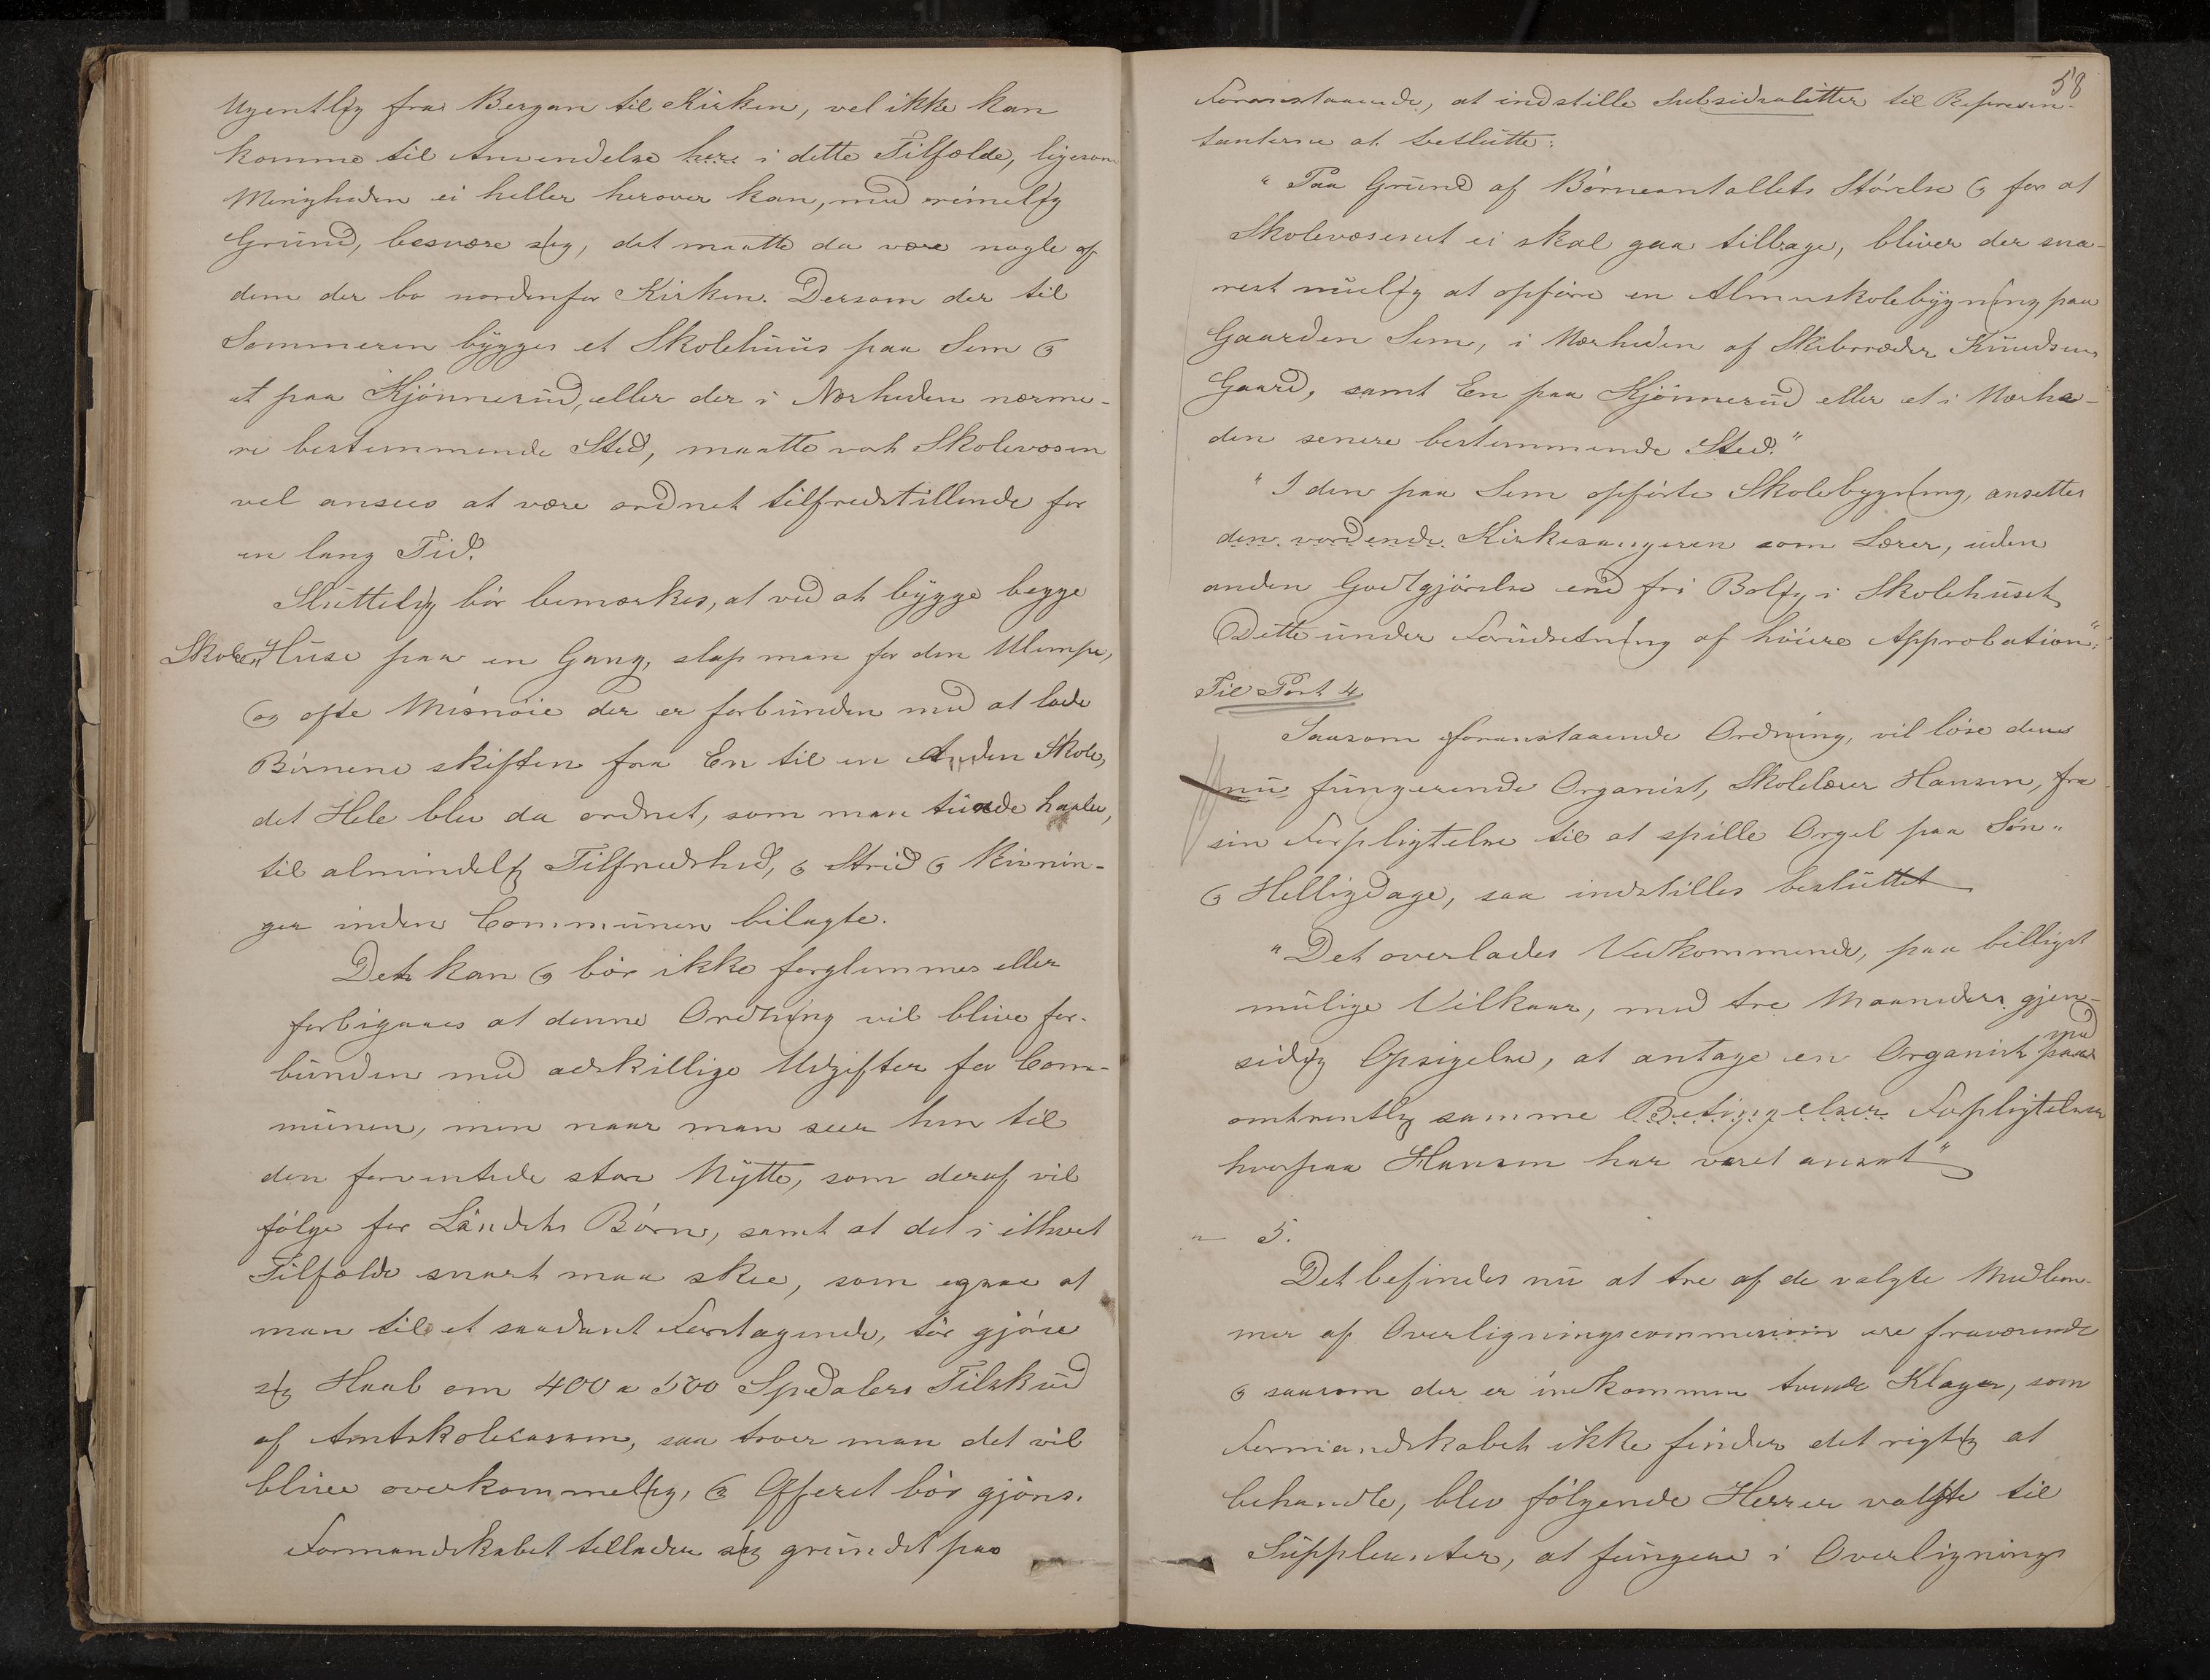 Ugentlig fra Bergan til Kirken, vel ikke kan
komme til Anvendelse her i dette Tilfælde, ligesom
Menigheden ei heller herover kan, med rimelig
Grund, besvære sig, det maatte da være nogle af
dem der bo nordenfor Kirken. Dersom der til
Sommeren bygges et Skolehuus paa Sem og
et paa Hjønnerud, eller der i Nærheden nærme-
re bestemmende Sted, maatte vort Skolevæsen
vel ansees at være ordnet tilfredstillende for
en lang Tid.
Sluttelig bør bemærkes, at ved at bygge begge
Skole Huse paa en Gang, slap man for den Ulempe,
og ofte Misnøie der er forbunden med at lade
Børnene skiften fra En til en Anden Skole,
det Hele blev da ordnet, som man turde haabe,
til almindelig Tilfredshed, og Strid og Rivnin-
ger inden Communen bilagte.
Det kan og bør ikke forglemmes eller
forbigaaes at denne Ordning vil blive for-
bunden med adskillige Udgifter for Com-
munen, men naar man seer hen til
den forventede store Nytte, som deraf vil
følge for Landets Børn, samt at det i ethvert
Tilfælde snart maa skee, som ogsaa at
man til et saadant Foretagende, tør gjøre
sig Haab om 400 a 500 Spedalers Tilskud
af Amtskolecassen, saa troer man det vil
blive overkommelig, og Offeret bør gjøres.
Formandskabet tillader sig grundet paa
58
Foranstaaende, at indstille Subsidialitter til Represen-
tanterne at beslutte:
"Paa Grund af Børneantallets Størelse og for at
Skolevæsenet ei skal gaa tilbage, bliver der sna-
rest muelig at opføre en Almuskolebygning paa
Gaarden Sem, i Nærheden af Skibsreder Knudsens
Gaard, samt En paa Hjønnerud eller et i Nærhe-
den senere bestemmende Sted."
"I den paa Sem opførte Skolebygning, ansettes
den vordende Kirkesangeren som Lærer, uden
anden Godtgjørelse end fri Bolig i Skolehuset
Dette under Forudsetning af høiere Approbation":
Til Post 4
Saasom foranstaaende Ordning, vil løse den
nu fungerende Organist, Skolelærer Hansen, fra
sin Forpligtelse til at spille Orgel paa Søn-
og Helligdage, saa indstilles besluttet
"Det overlades Vedkommende, paa billigst
mulige Vilkaar, med tre Maaneders gjen-
sidig Opsigelse, at antage en Organist med
omtrentlig samme Betingelser Forpligtelser
hvorpaa Hansen har været ansat"
" 5.
Det befindes nu at tre af de valgte Medlem-
mer af Overligningscommission ere fraværende
og saasom der er indkommen tvende Klager, som
Formandskabet ikke finder det rigtig at
behandle, blev følgende Herrer valgte til
Suppleanter, at fungere i Overlignings